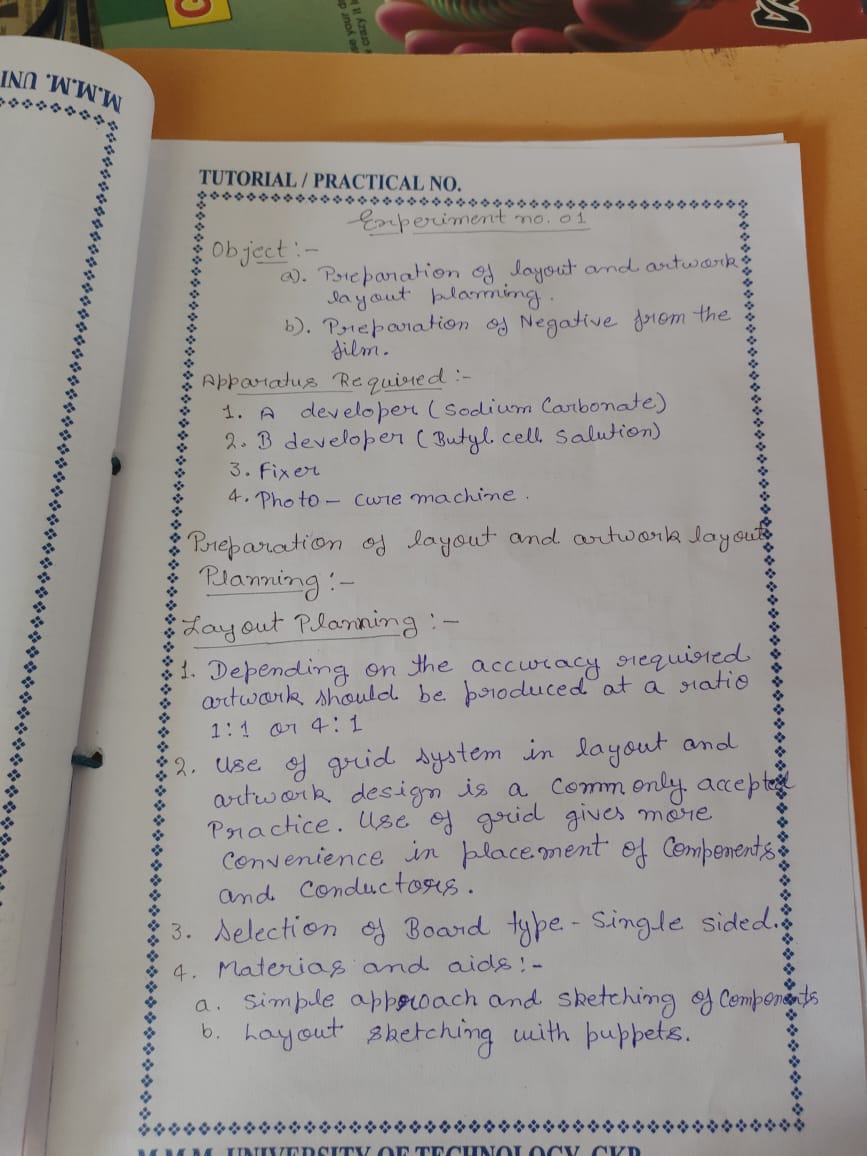 M.M.M. UNI
TUTORIAL / PRACTICAL NO.
Experiment no. 01
Object :-
a). Preparation of layout and artwork
layout planning.
b). Preparation of Negative from the
film.
Apparatus Required :-
1. A developer (Sodium Carbonate)
2. B developer (Butyl cell salution)
3. Fixer
4. Photo - cure machine.
Preparation of layout and artwork layout
Planning :-
Layout Planning :-
1. Depending on the accuracy required
artwork should be produced at a ratio
1:1 or 4:1
2. Use of grid system in layout and
artwork design is a commonly accepted
Practice. Use of grid gives more
convenience in placement of components
and conductors.
3. Selection of Board type - Single sided.
4. Materias and aids :-
a. Simple approach and sketching of Components
b. Layout sketching with puppets.
M.M.M. UNIVERSITY OF TECHNOLOGY, GKP